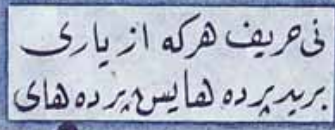 نی حریف هرکه از یاری
برید پرده هایس پرده های